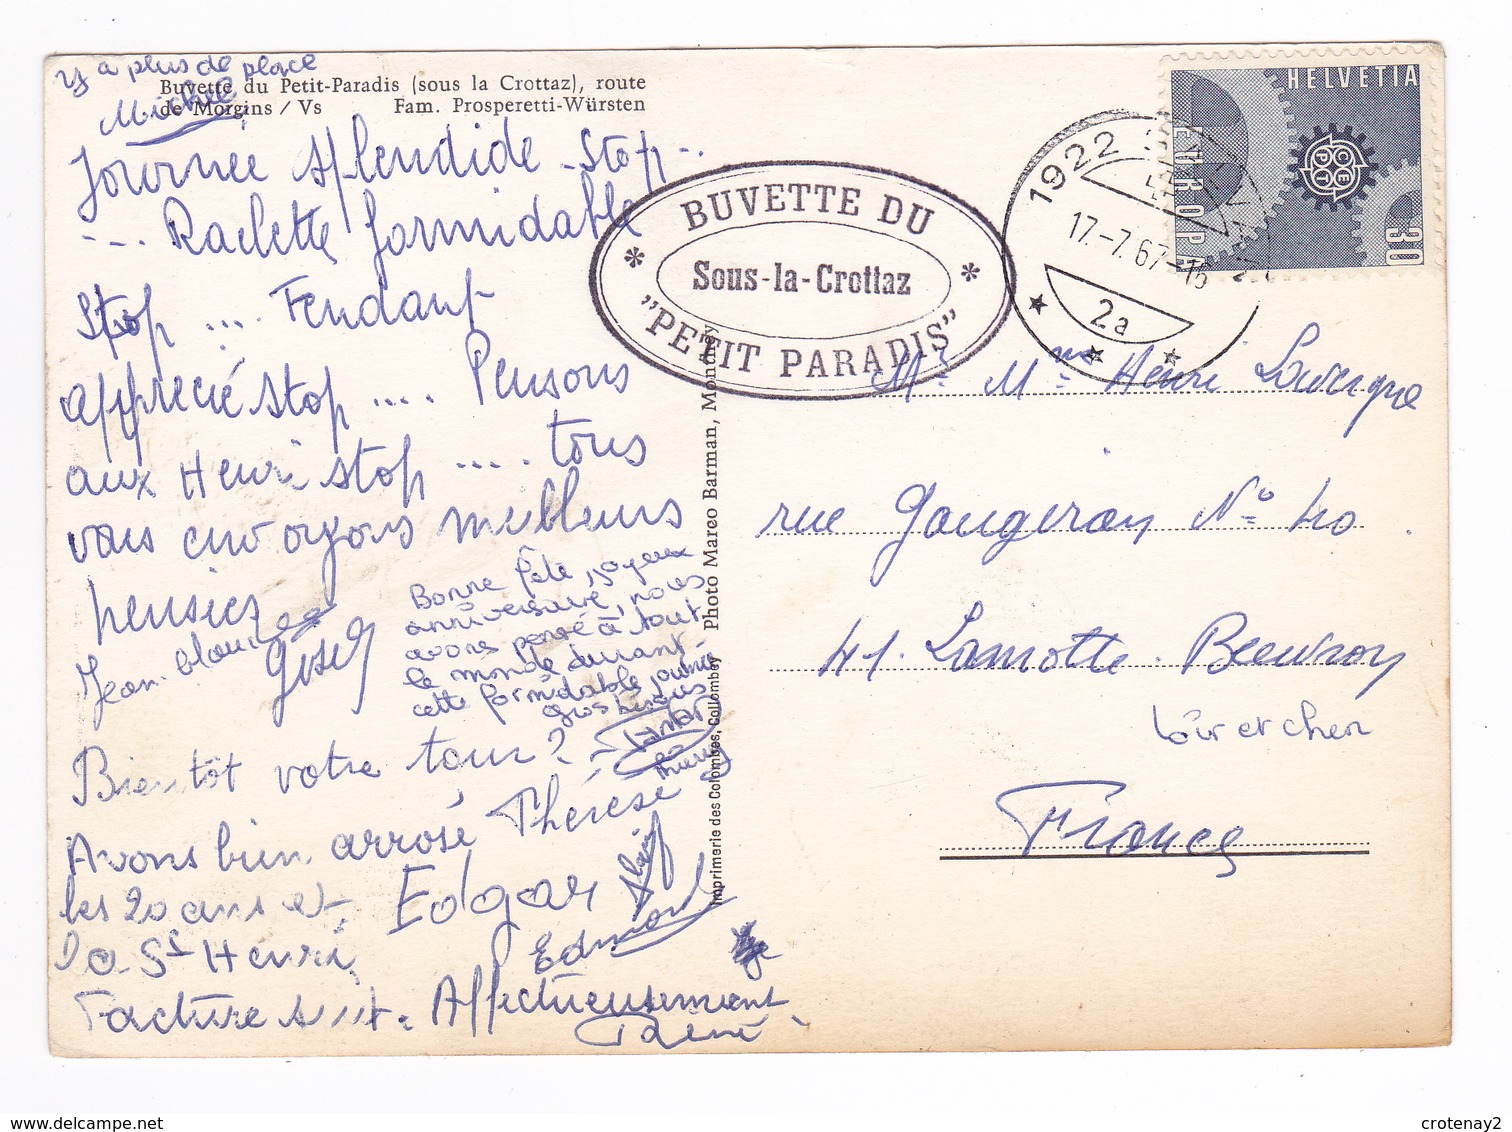 y a plus de place
Michel
Buvette du Petit-Paradis (sous la Crottaz), route
de Morgins / Vs Fam. Prosperetti-Würsten
Journée splendide - Stop -..
---. Raclette formidable
Stop .... Fendant
apprécié stop .... Pensons
aux Henri stop ..... tous
vous envoyons meilleurs
pensées
Jean-Claude
Gisel
Bonne fête, joyeux
anniversaire, nous
avons pensé à tout
le monde durant
cette formidable journée
gros bisous
Bientôt votre tour?
Avons bien arrosé Thérèse
les 20 ans et Edgar
la St Henri
Edmond
Facture suit. Affectueusement
René
Photo Marco Barman, Monthey
Imprimerie des Colombes, Collombey
BUVETTE DU
Sous-la-Crottaz
"PETIT PARADIS"
1922
17.-7.67-16
2a
HELVETIA
EUROPA
CEPT
30
Mr Mme Henri Lavergne
rue Gaugeran No 40
41. Lamotte. Beuvron
Loir et Cher
France
crotenay2